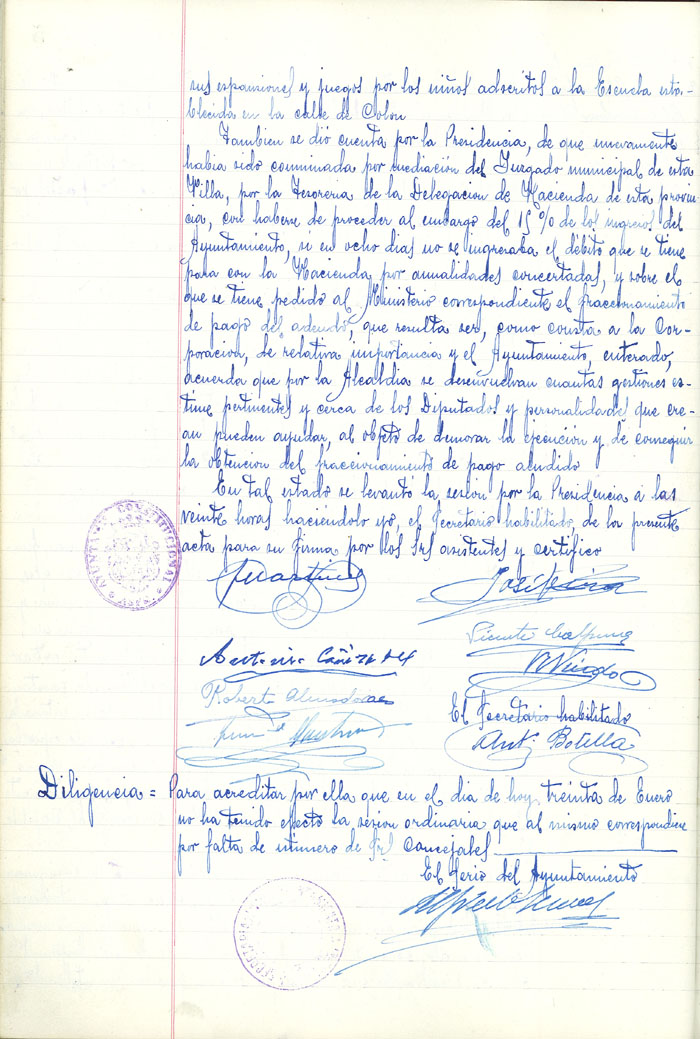 sus expansiones y juegos por los niños adscritos a la Escuela esta-
blecida en la calle de Colon
Tambien se dió cuenta por la Presidencia, de que nuevamente
habia sido conminada por mediación del Juzgado municipal de esta
Villa, por la Tesoreria de la Delegacion de Hacienda de esta provin-
cia, con haberse de proceder al embargo del 15% de los ingresos del
Ayuntamiento, si en ocho dias no se ingresaba el débito que se tiene
para con la Hacienda por anualidades concertadas, y sobre el
que se tiene pedido al Ministerio correspondiente el fraccionamiento
de pago del adeudo, que resulta ser, como consta a la Cor-
poracion, de relativa importancia y el Ayuntamiento, enterado,
acuerda que por la Alcaldia se desenvuelvan cuantas gestiones es-
time pertinentes y cerca de los Diputados y personalidades que cre-
an pueden ayudar, al objeto de demorar la ejecución y de conseguir
la obtencion del fraccionamiento de pago aludido
En tal estado se levantó la sesion por la Presidencia a las
veinte horas haciéndolo yo, el Secretario habilitado, de la presente
acta para su firma por los Srs asistentes y certifico
AYUNTAMIENTO CONSTITUCIONAL
* ASPE *
Martinez
José
Vicente
Antonio Cañizares
Roberto Almodovar
El Secretario habilitado
Ant. Botella
Diligencia = Para acreditar por ella que en el dia de hoy treinta de Enero
no ha tenido efecto la sesion ordinaria que al mismo corresponde
por falta de número de Srs Concejales
El Serio del Ayuntamiento
Alfredo